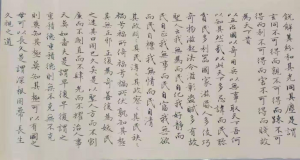 銳解其紛和其光同其塵是謂
玄同不可得而親不可得而疏不可
得而利不可得而害不可得而貴不可得而賤故
為天下貴
以正治國以奇用兵以無事取天下吾何
以知其然哉以此天下多忌諱而民彌
貧民多利器國家滋昏人多伎巧
奇物滋起法令滋彰盜賊多有故
聖人云我無為而民自化我好靜而
民自正我無事而民自富我無欲
而民自樸我無情而民自清
其政悶悶其民淳淳其政察察其民缺缺
禍兮福所倚福兮禍所伏孰知其極
其無正正復為奇善復為妖民
之迷其日固久矣是以聖人方而不割
廉而不劌直而不肆光而不耀治人事
天莫如嗇夫唯嗇是謂早服早服謂之
重積德重積德則無不克無不克
則莫知其極莫知其極可以有國有國之
母可以長久是謂深根固蒂長生
久視之道